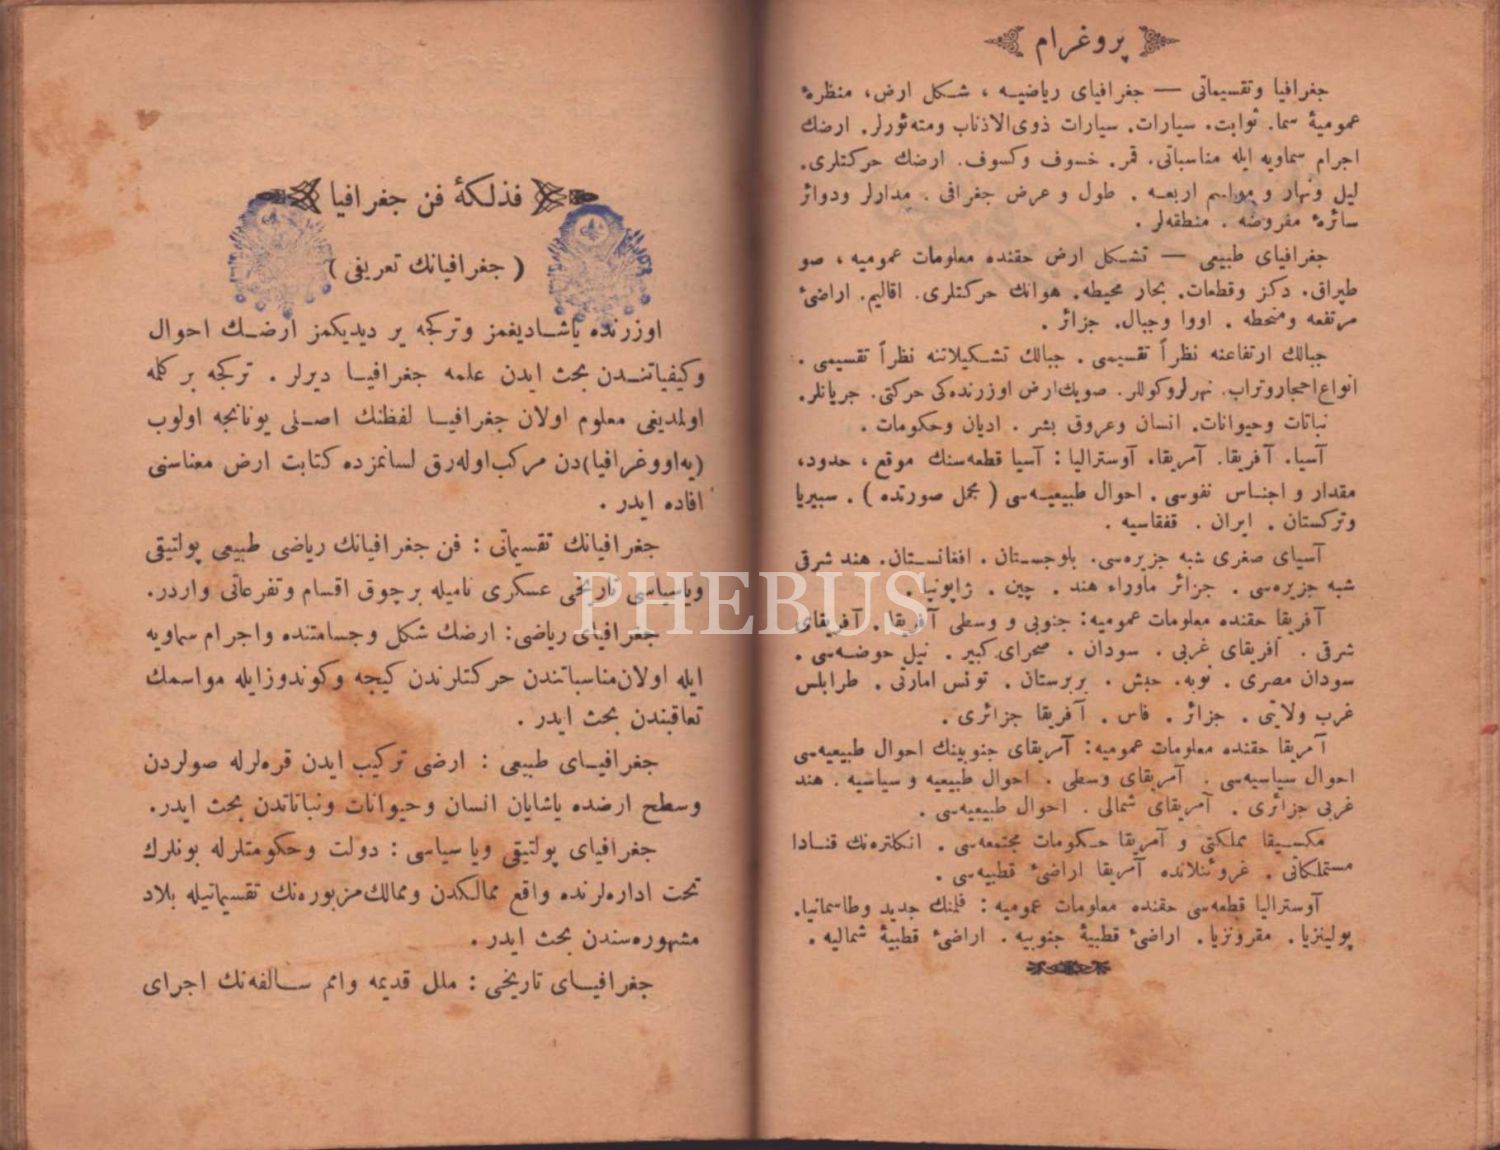 پروغرام
جغرافیا وتقسیماتی — جغرافیای ریاضیه ، شكل ارض، منظرهٔ
عمومیهٔ سما. ثوابت. سیارات. سیارات ذوی‌الاذناب ومته‌ئورلر. ارضك
اجرام سماویه ایله مناسباتی. قمر. خسوف وكسوف. ارضك حركتلری.
لیل ونهار و مواسم اربعه . طول و عرض جغرافی . مدارلر ودوائر
سائرهٔ مفروضه . منطقه‌لر .
جغرافیای طبیعی — تشكل ارض حقنده معلومات عمومیه ، صو
طپراق. دكز وقطعات. بحار محیطه. هوانك حركتلری. اقالیم. اراضیٔ
مرتفعه ومنحطه . اووا وجبال. جزائر .
جبالك ارتفاعنه نظراً تقسیمی . جبالك تشكیلاتنه نظراً تقسیمی .
انواع احجار وتراب. نهرلر وكوللر. صویك ارض اوزرنده‌كی حركتی. جریانلر.
نباتات وحیوانات. انسان وعروق بشر . ادیان وحكومات .
آسیا. آفریقا. آمریقا. آوسترالیا : آسیا قطعه‌سنك موقع ، حدود،
مقدار و اجناس نفوسی . احوال طبیعیه‌سی ( مجمل صورتده ) . سبیریا
وتركستان . ایران . قفقاسیه .
آسیای صغری شبه جزیره‌سی. بلوجستان . افغانستان. هند شرقی
شبه جزیره‌سی . جزائر ماوراء هند . چین . ژاپونیا .
آفریقا حقنده معلومات عمومیه: جنوبی و وسطی آفریقا . آفریقای
شرقی . آفریقای غربی . سودان . صحرای كبیر . نیل حوضه‌سی .
سودان مصری . نوبه. حبش . بربرستان . تونس امارتی . طرابلس
غرب ولایتی . جزائر . فاس . آفریقا جزائری .
آمریقا حقنده معلومات عمومیه: آمریقای جنوبینك احوال طبیعیه‌سی
احوال سیاسیه‌سی . آمریقای وسطی . احوال طبیعیه و سیاسیه . هند
غربی جزائری . آمریقای شمالی . احوال طبیعیه‌سی .
مكسیقا مملكتی و آمریقا حكومات مجتمعه‌سی . انكلتره‌نك قنادا
مستملكاتی . غروئنلانده آمریقا اراضیٔ قطبیه‌سی .
آوسترالیا قطعه‌سی حقنده معلومات عمومیه : فلمنك جدید وطاسمانیا.
پولینزیا. مقرونزیا. اراضیٔ قطبیهٔ جنوبیه . اراضیٔ قطبیهٔ شمالیه .
فذلكهٔ فن جغرافیا
( جغرافیانك تعریفی )
اوزرنده یاشادیغمز وتركجه یر دیدیكمز ارضك احوال
وكیفیاتندن بحث ایدن علمه جغرافیا دیرلر . تركجه بر كلمه
اولمدیغی معلوم اولان جغرافیا لفظنك اصلی یونانجه اولوب
(یه‌اووغرافیا)دن مركب‌اوله‌رق لسانمزده كتابت ارض معناسنی
افاده ایدر .
جغرافیانك تقسیماتی : فن جغرافیانك ریاضی طبیعی پولتیقی
ویاسیاسی تاریخی عسكری نامیله برچوق اقسام وتفرعاتی واردر.
جغرافیای ریاضی: ارضك شكل وجسامتنده واجرام سماویه
ایله اولان‌مناسباتندن حركتلرندن كیجه وكوندوزایله مواسمك
تعاقبندن بحث ایدر .
جغرافیای طبیعی : ارضی تركیب ایدن قره‌لرله صولردن
وسطح ارضده یاشایان انسان وحیوانات ونباتاتدن بحث ایدر.
جغرافیای پولتیقی ویا سیاسی : دولت وحكومتلرله بونلرك
تحت اداره‌لرنده واقع ممالكدن وممالك‌مزبوره‌نك تقسیماتیله بلاد
مشهوره‌سندن بحث ایدر .
جغرافیای تاریخی : ملل قدیمه وامم سالفه‌نك اجرای
PHEBUS